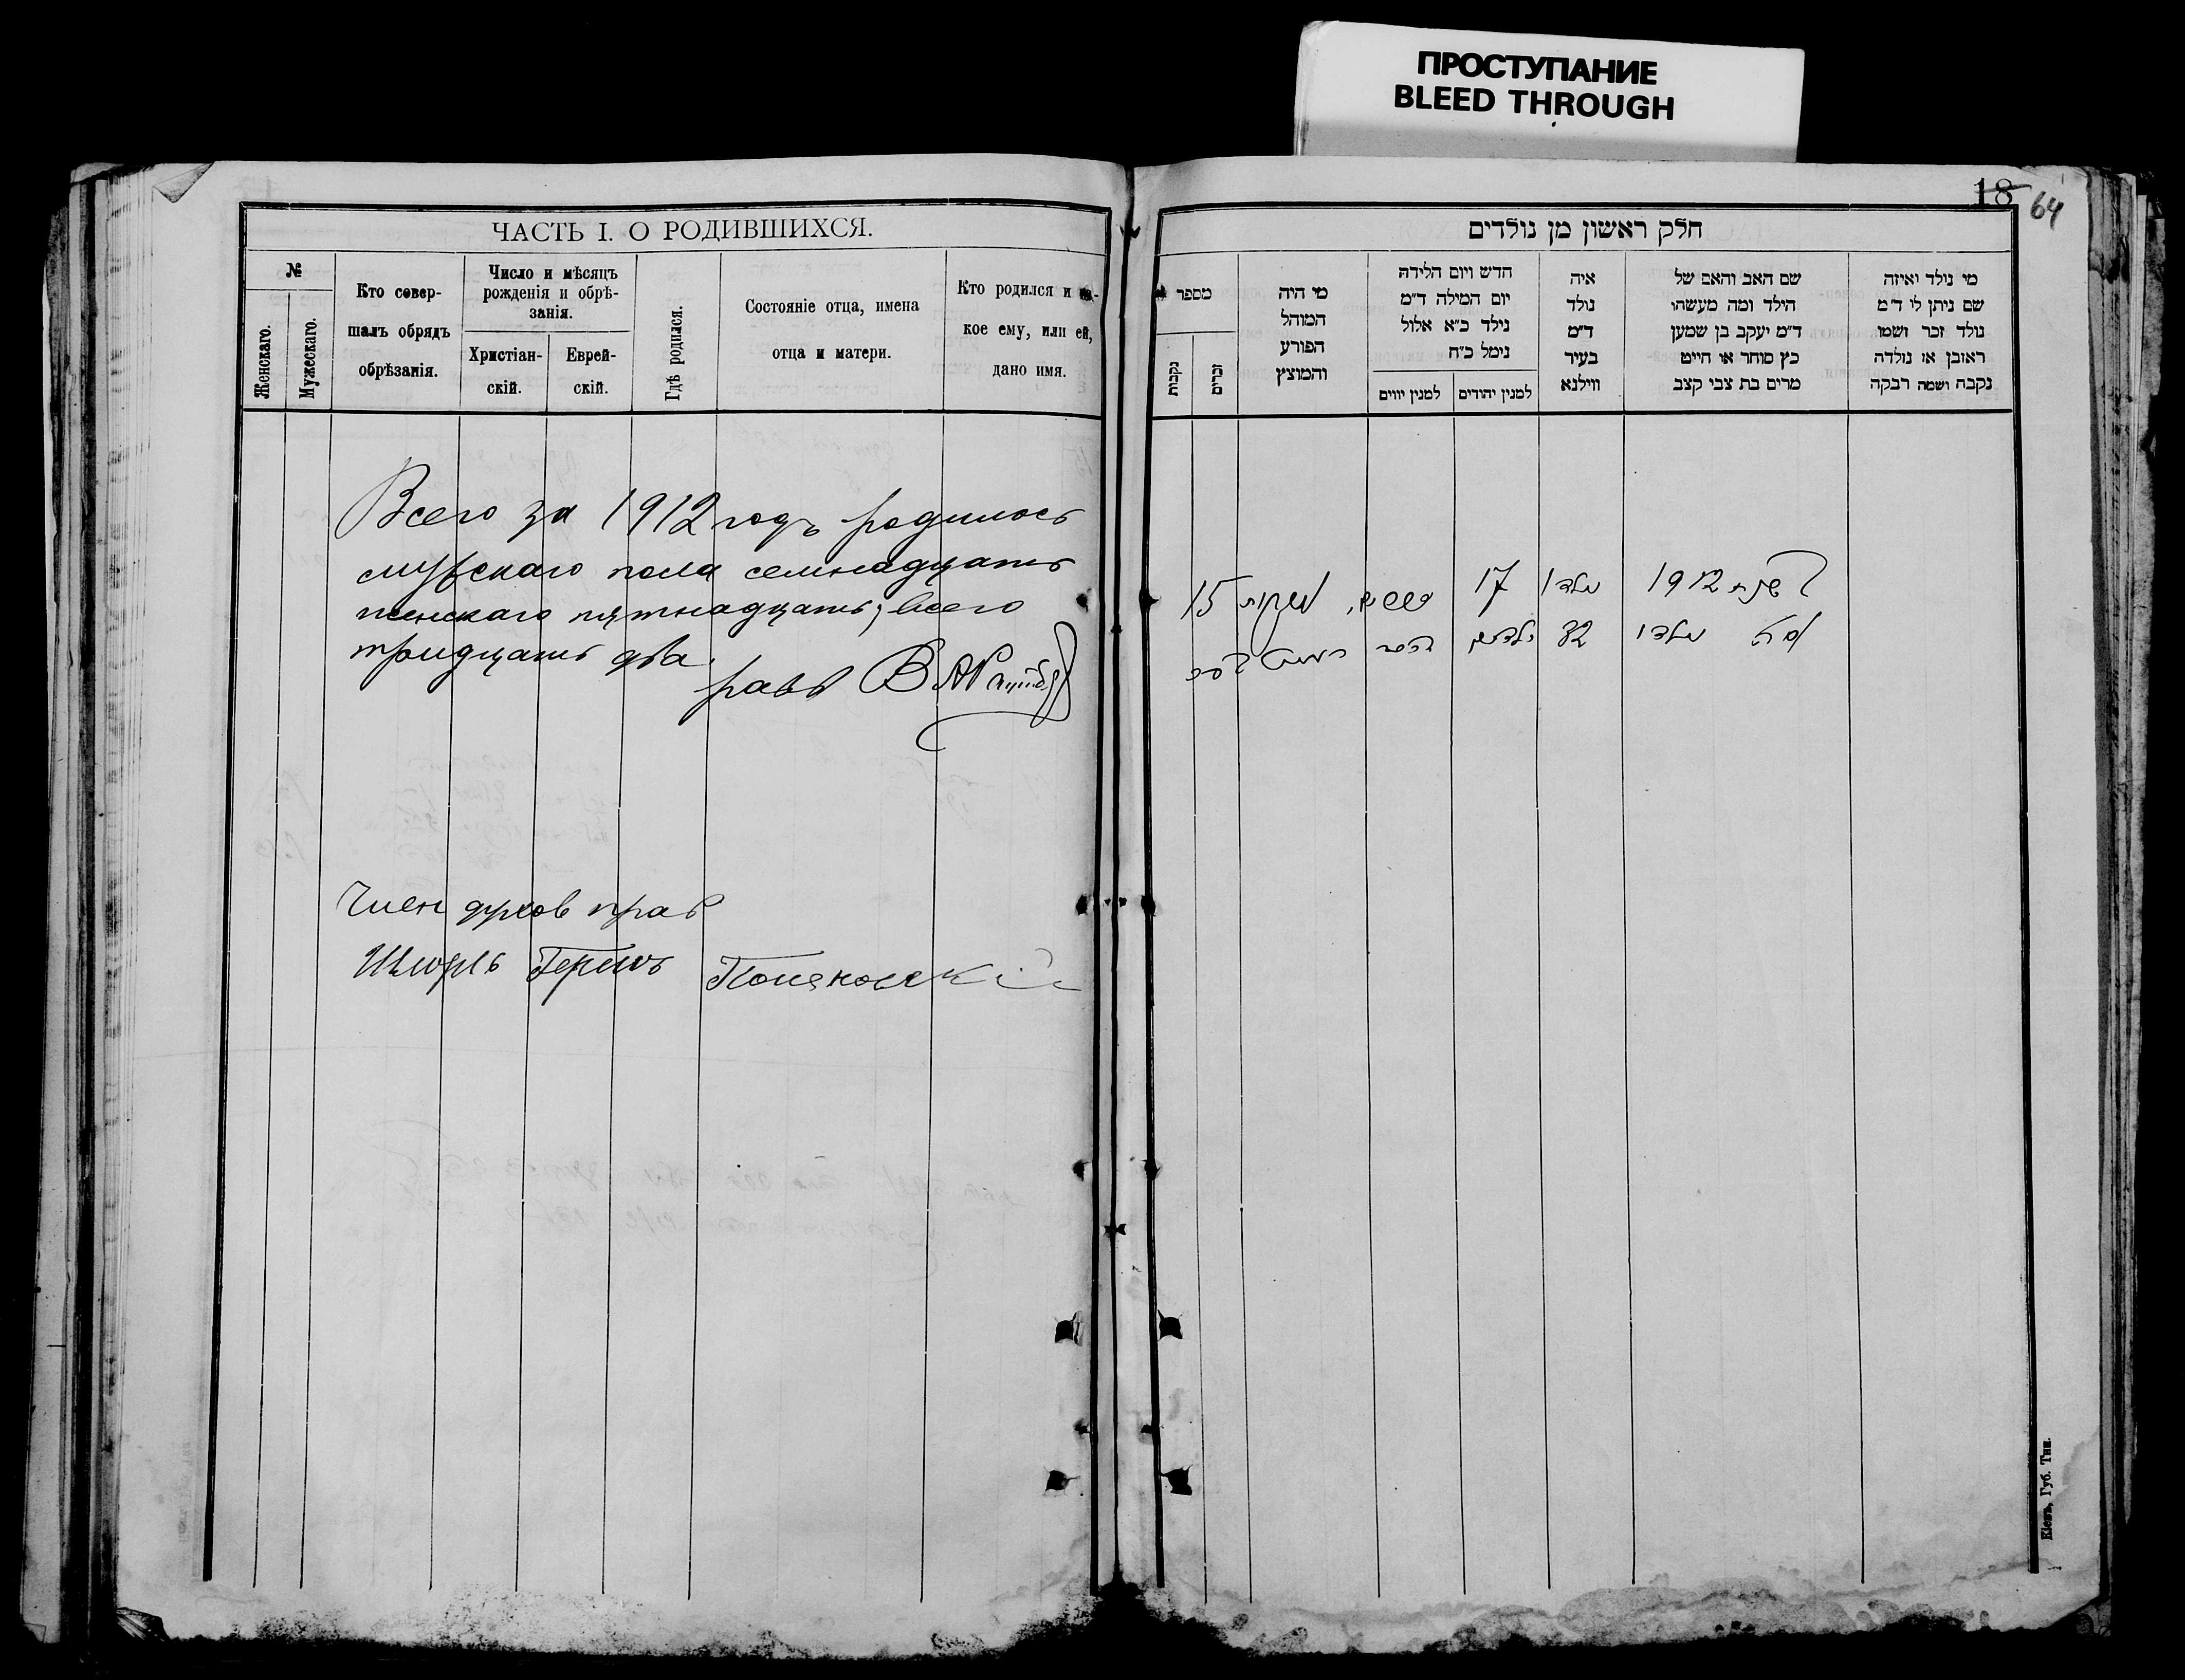 ПРОСТУПАНИЕ
BLEED THROUGH
ЧАСТЬ I. О РОДИВШИХСЯ.
№
Женскаго.
Мужескаго.
Кто совер-
шалъ обрядъ
обрѣзанія.
Число и мѣсяцъ
рожденія и обрѣ-
занія.
Христіан-
скій.
Еврей-
скій.
Гдѣ родился.
Состояніе отца, имена
отца и матери.
Кто родился и ка-
кое ему, или ей,
дано имя.
Всего за 1912 годъ родилось
мужскаго пола семнадцать
женскаго пятнадцать, всего
тридцать два.
равв
Член духов прав
Шмуль Герш
18 64
חלק ראשון מן נולדים
מספר
נקבות
זכרים
מי היה
המוהל
הפורע
והמוצץ
חדש ויום הלידה
יום המילה ד"מ
נילד כ"א אלול
נימל כ"ח
למנין יווים
למנין יהודים
איה
נולד
ד"מ
בעיר
ווילנא
שם האב והאם של
הילד ומה מעשהו
ד"מ יעקב בן שמען
כץ סוחר או חייט
מרים בת צבי קצב
מי נולד ואיזה
שם ניתן לו ד"מ
נולד זכר ושמו
ראובן או נולדה
נקבה ושמה רבקה
בשנת 1912 נולדו 17 ונקבות 15
נולדו 32 ילדים
Кіевъ, Губ. Тип.